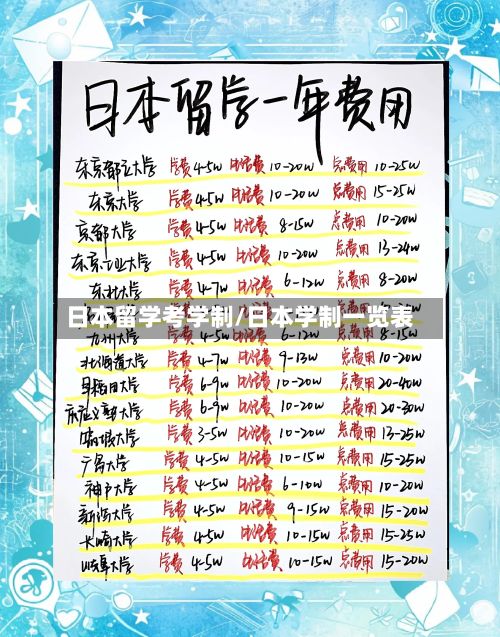 日本留学一年费用
东京都立大学 学费4-5w 生活费10-20w 总费用10-25w
东京大学 学费4-5w 生活费10-20w 总费用15-25w
京都大学 学费4-5w 生活费8-15w 总费用10-20w
东京工业大学 学费4-5w 生活费10-20w 总费用13-24w
东北大学 学费4-7w 生活费6-12w 总费用8-20w
日本留学考学制/日本学制一览表
九州大学 6-12w 8-15w
北海道大学 学费4-7w 生活费9-13w 总费用10-20w
早稻田大学 学费6-9w 生活费10-20w 总费用20-40w
庆应义塾大学 学费6-9w 生活费10-20w 总费用20-30w
大学 学费3-5w 生活费10-20w 总费用13-25w
广岛大学 学费4-5w 生活费10-15w 总费用15-25w
神户大学 学费4-5w 生活费6-10w 总费用10-20w
新泻大学 学费4-5w 生活费9-15w 总费用15-20w
长崎大学 学费4-5w 生活费10-15w 总费用15-25w
岐阜大学 学费4-5w 生活费10-15w 总费用15-20w